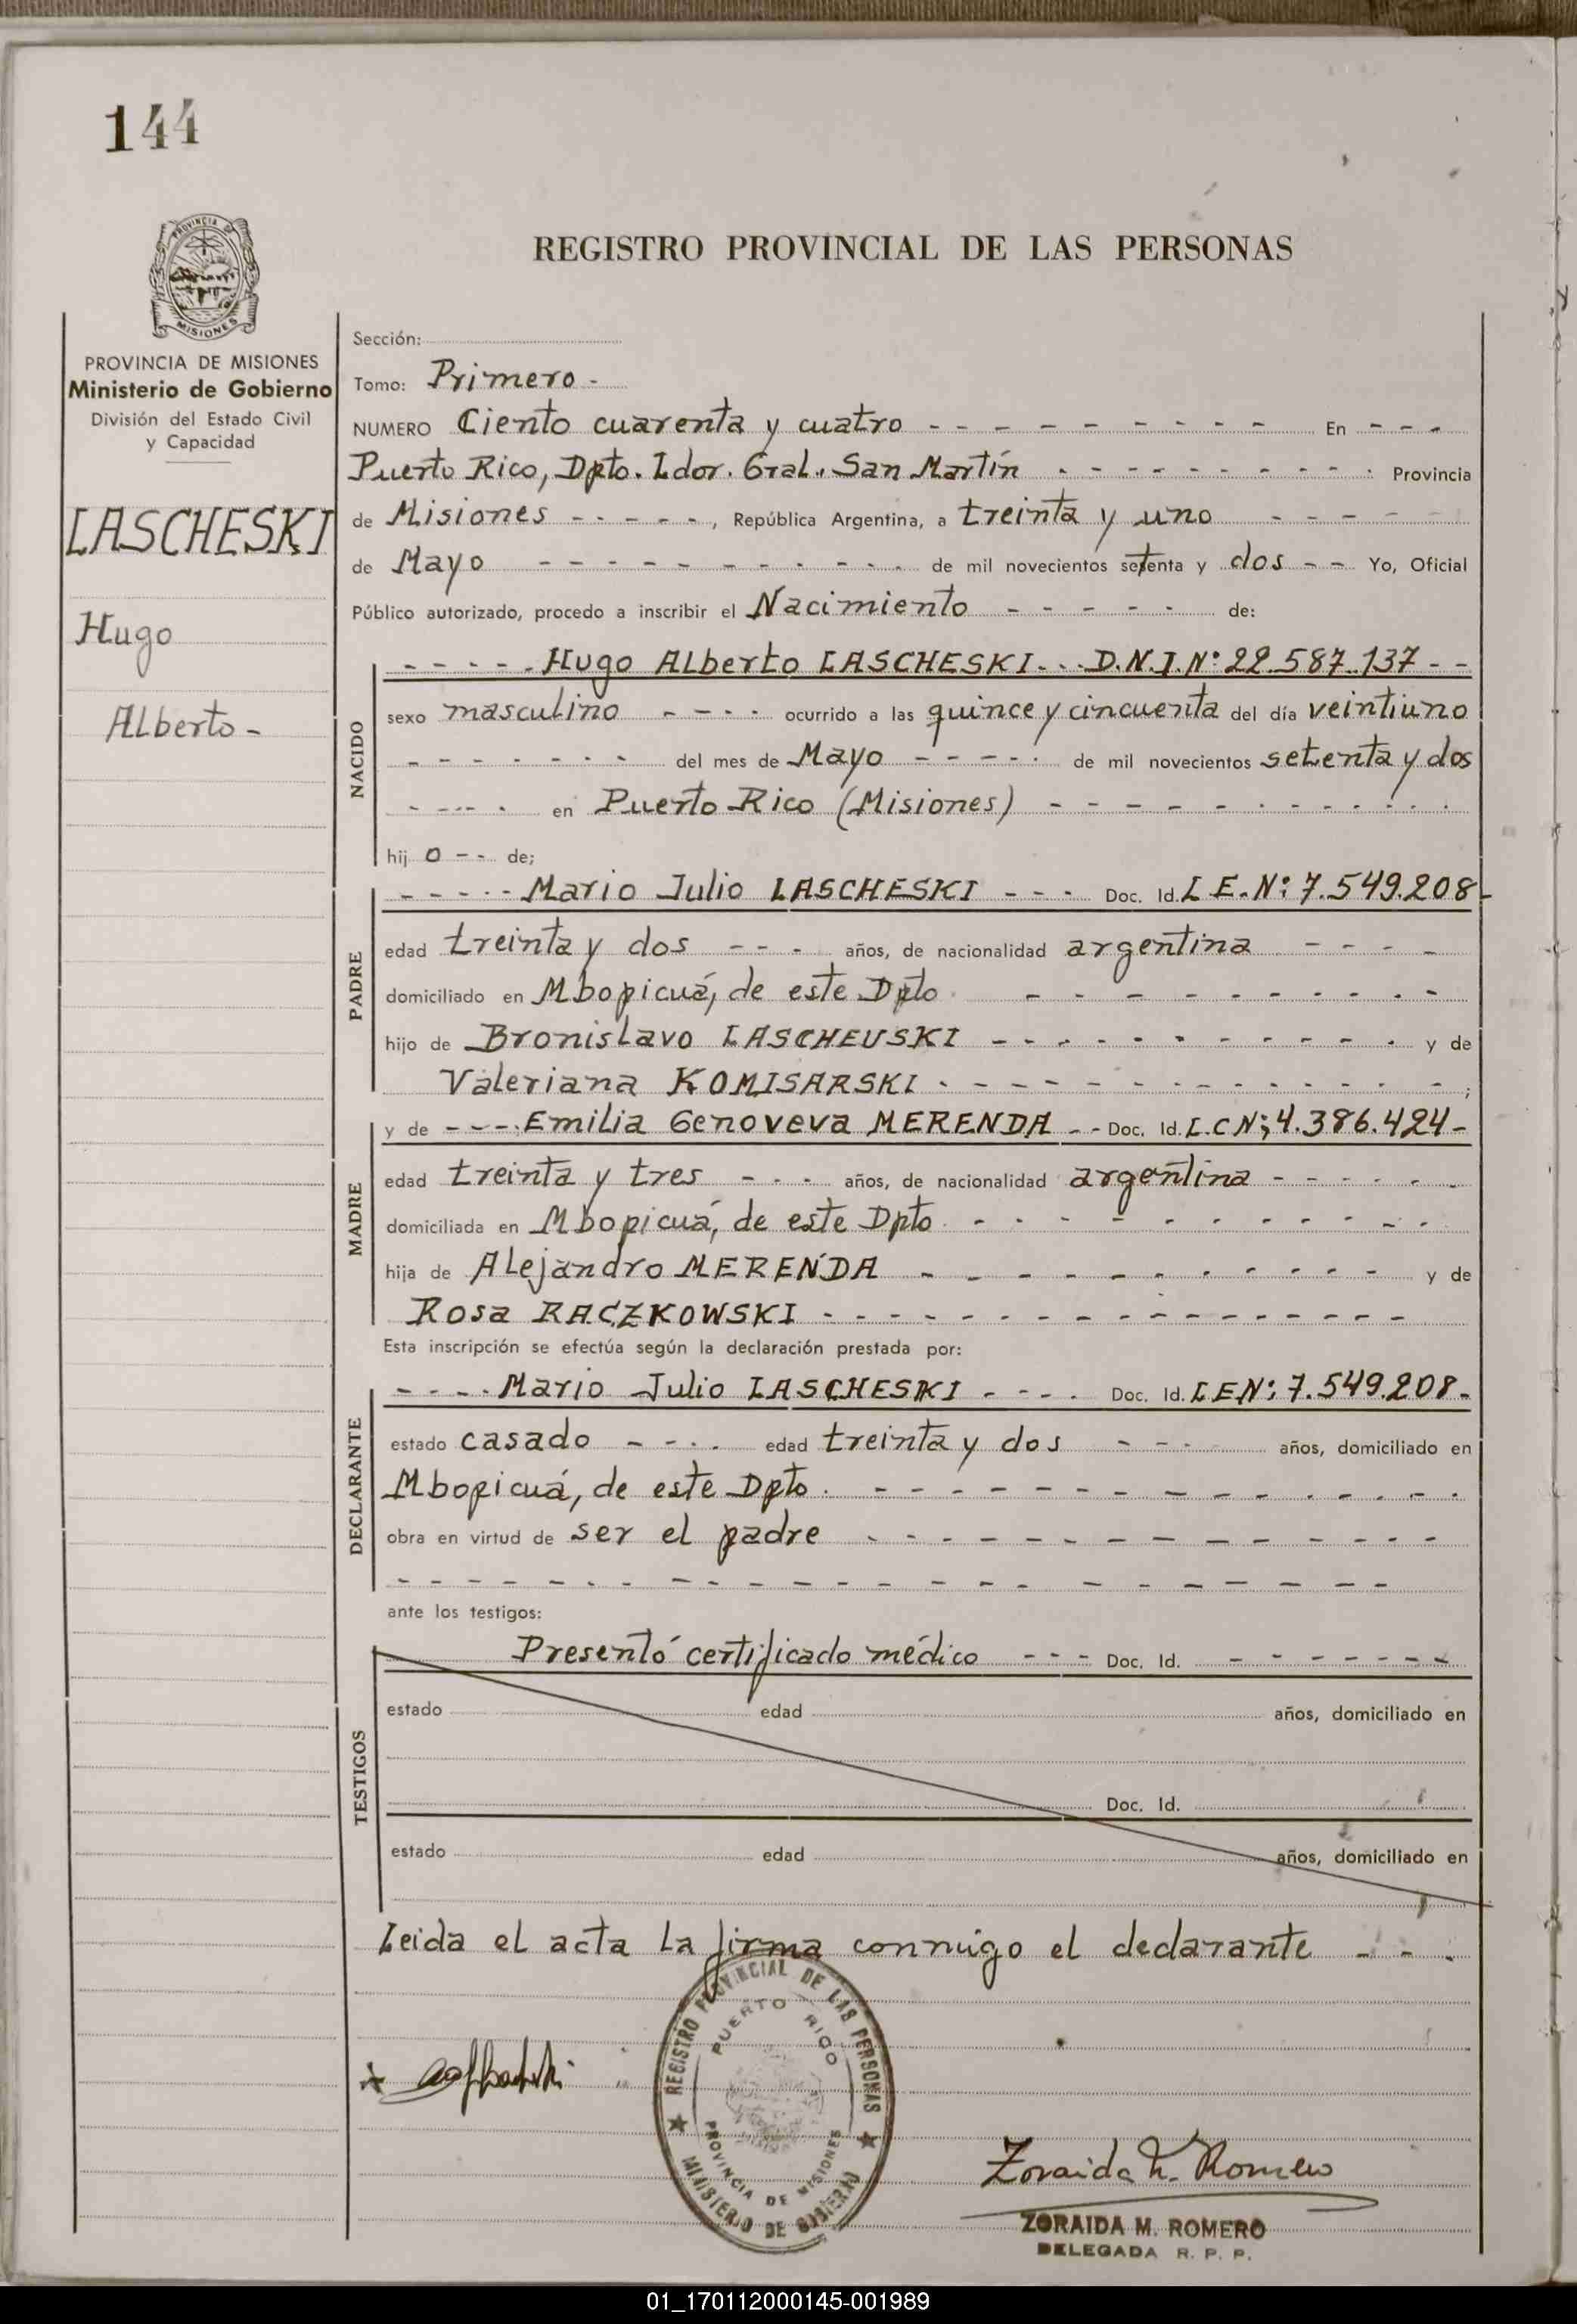 144
PROVINCIA DE
MISIONES
PROVINCIA DE MISIONES
Ministerio de Gobierno
División del Estado Civil
y Capacidad
LASCHESKI
Hugo
Alberto -
REGISTRO PROVINCIAL DE LAS PERSONAS
Sección:
Tomo: Primero -
NUMERO Ciento cuarenta y cuatro - - - - - - - - - En - - -
Puerto Rico, Dpto. Ldor. Gral. San Martín - - - - - - - - - Provincia
de Misiones - - - - -, República Argentina, a treinta y uno - - - - -
de Mayo - - - - - - - - - - de mil novecientos setenta y dos - - Yo, Oficial
Público autorizado, procedo a inscribir el Nacimiento - - - - - de:
- - - - - Hugo Alberto LASCHESKI - - - D.N.I. N° 22.587.137 - -
NACIDO
sexo masculino - - - - ocurrido a las quince y cincuenta del día veintiuno
- - - - - - - del mes de Mayo - - - - - de mil novecientos setenta y dos
- - - - en Puerto Rico (Misiones) - - - - - - - - - - -
hij o - - de;
- - - - - Mario Julio LASCHESKI - - - Doc. Id. L E. N: 7.549.208 -
PADRE
edad treinta y dos - - - años, de nacionalidad argentina - - - -
domiciliado en Mbopicuá, de este Dpto - - - - - - - - -
hijo de Bronislavo LASCHEUSKI - - - - - - - - - - y de
Valeriana KOMISARSKI - - - - - - - - - - - - ;
y de - - - Emilia Genoveva MERENDA - - Doc. Id. L.C N: 4.386.424 -
MADRE
edad treinta y tres - - - años, de nacionalidad argentina - - - - - -
domiciliada en Mbopicuá, de este Dpto. - - - - - - - - - -
hija de Alejandro MERENDA - - - - - - - - - - y de
Rosa RACZKOWSKI - - - - - - - - - - - - -
Esta inscripción se efectúa según la declaración prestada por:
- - - - Mario Julio LASCHESKI - - - - Doc. Id. L E N: 7.549.208 -
DECLARANTE
estado casado - - - - edad treinta y dos - - - años, domiciliado en
Mbopicuá, de este Dpto. - - - - - - - - - - - - -
obra en virtud de ser el padre - - - - - - - - - - - - -
- - - - - - - - - - - - - - - - - - - -
ante los testigos:
Presentó certificado médico - - - Doc. Id. - - - - - - -
TESTIGOS
estado edad años, domiciliado en
Doc. Id.
estado edad años, domiciliado en
Leida el acta la firma conmigo el declarante - - -
REGISTRO PROVINCIAL DE LAS PERSONAS
PUERTO RICO
PROVINCIA DE MISIONES
MINISTERIO DE GOBIERNO
Zoraida M. Romero
ZORAIDA M. ROMERO
DELEGADA R. P. P.
01_170112000145-001989